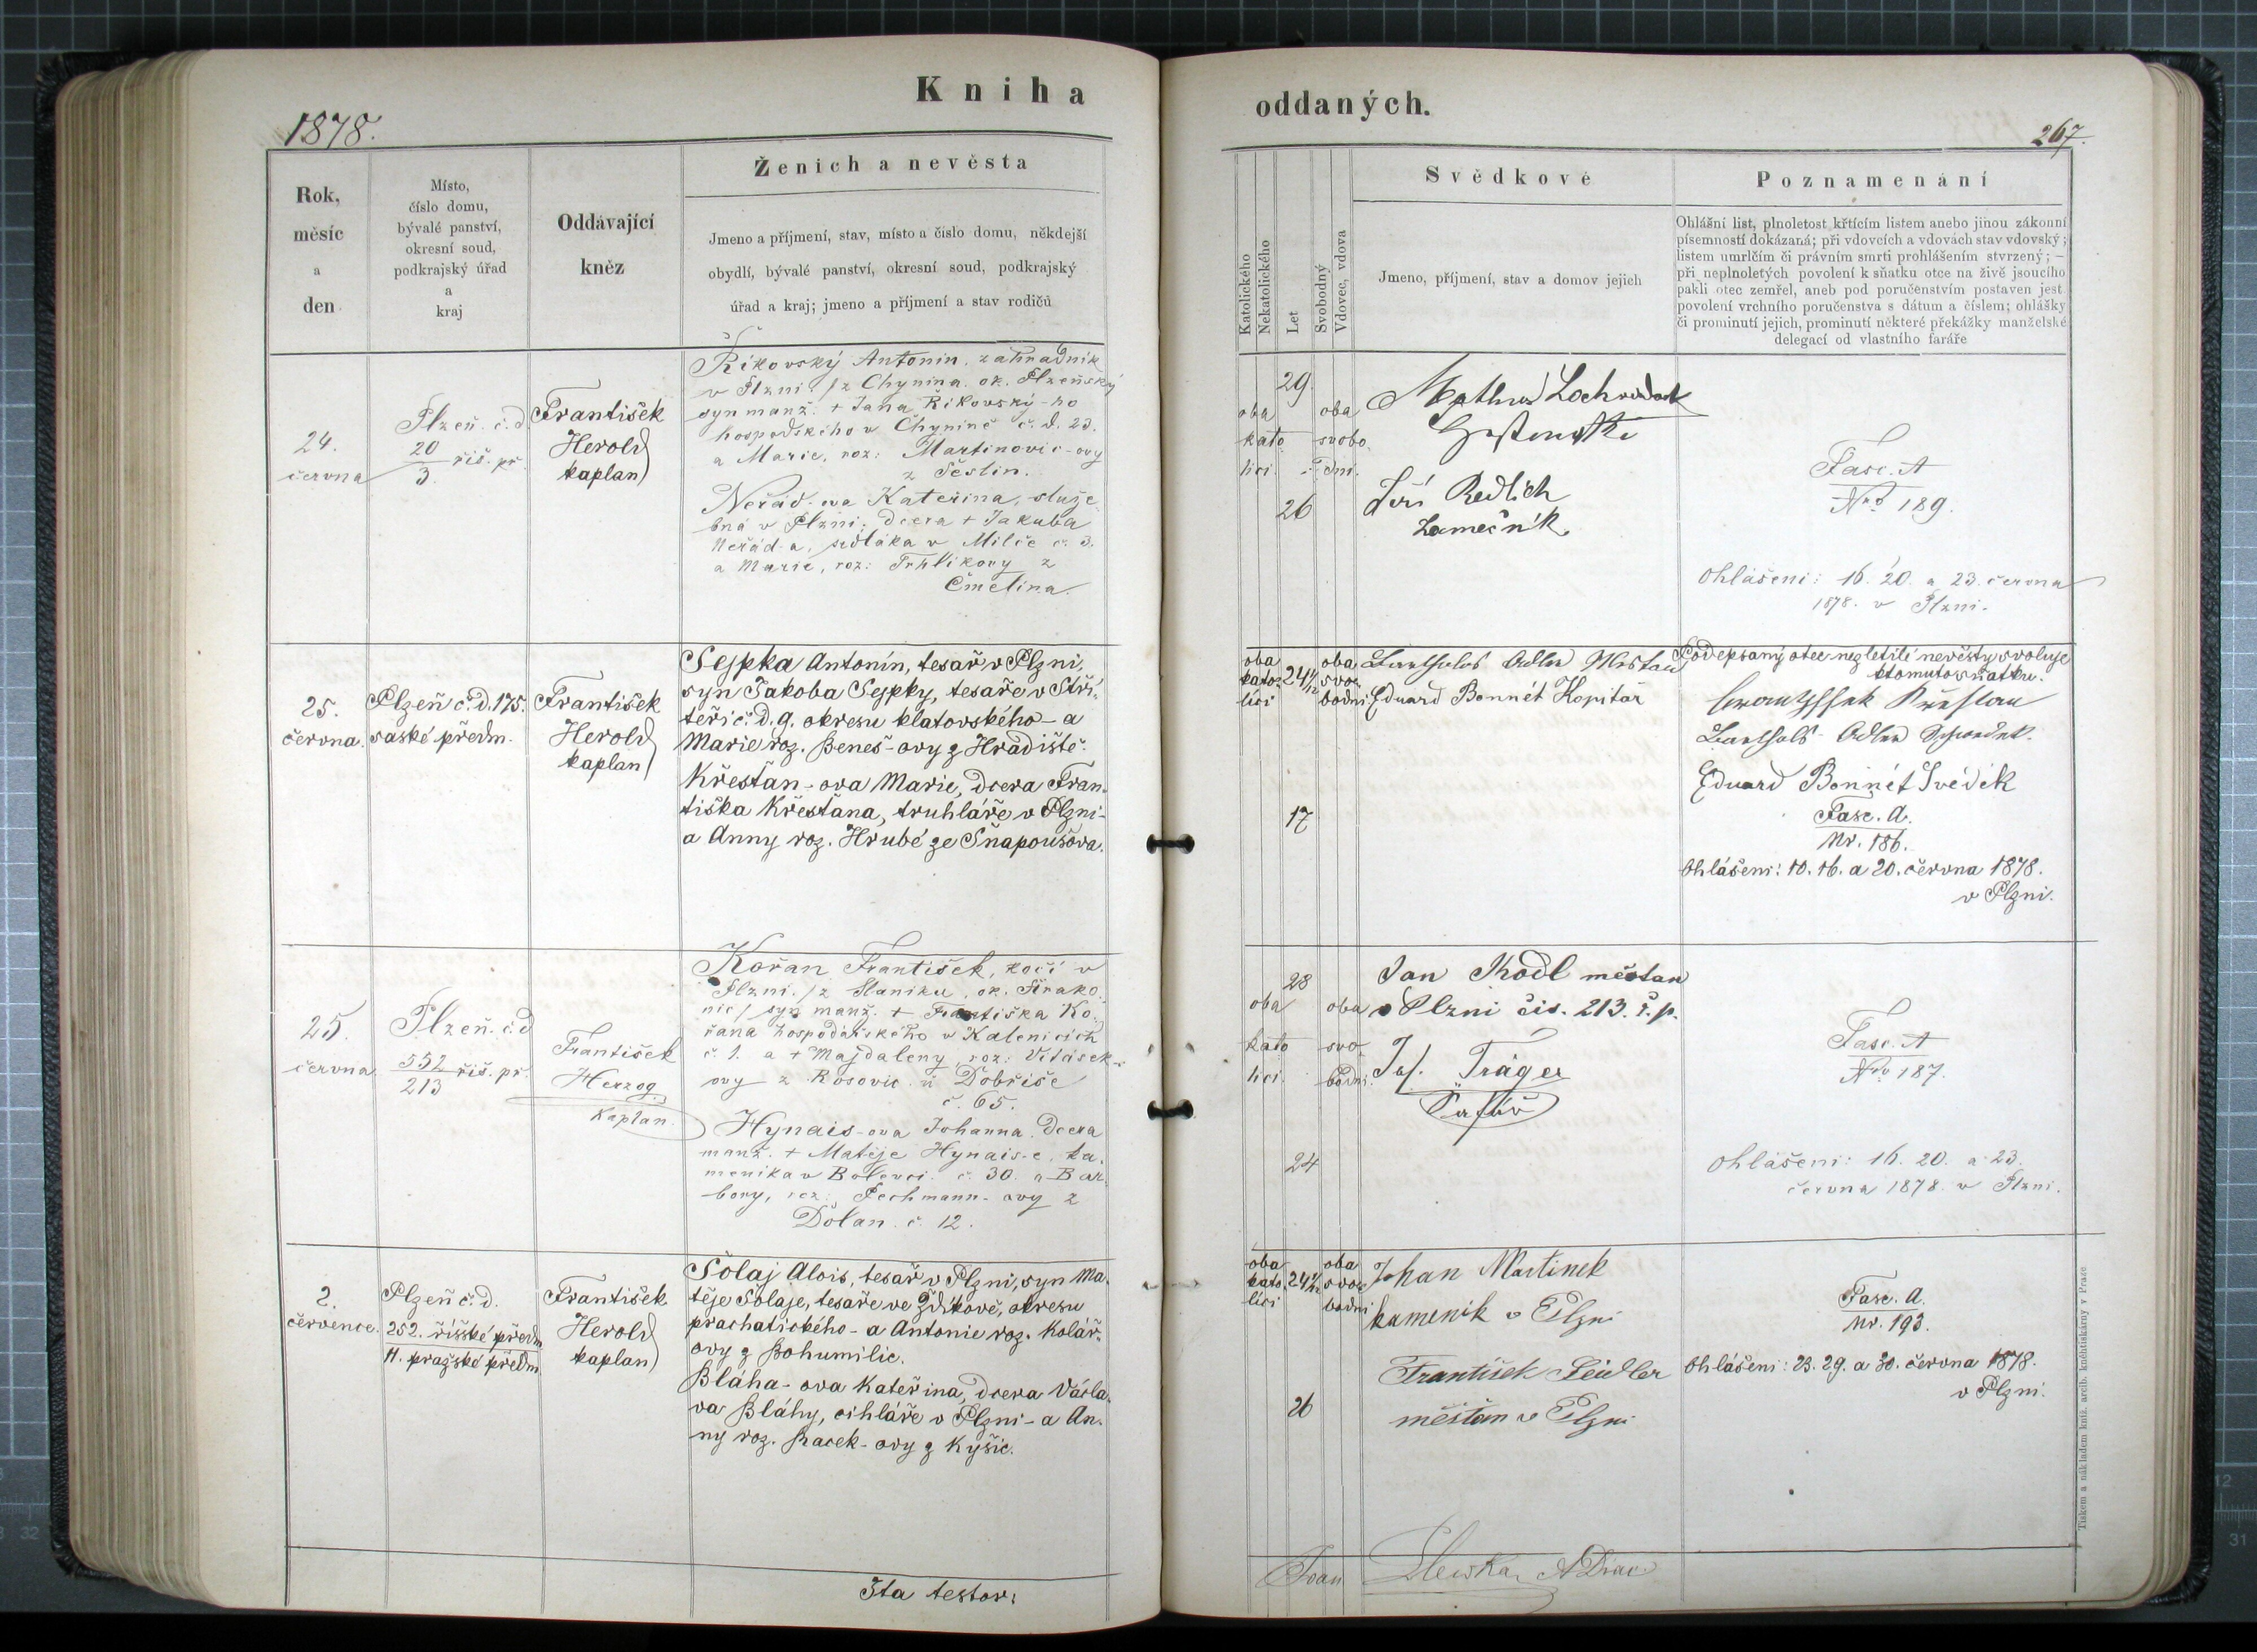 Kniha
oddaných.
1878.
267.
Rok,
měsíc
a
den
Místo,
číslo domu,
bývalé panství,
okresní soud,
podkrajský úřad
a
kraj
Oddávající
kněz
Ženich a nevěsta
Jmeno a příjmení, stav, místo a číslo domu, někdejší
obydlí, bývalé panství, okresní soud, podkrajský
úřad a kraj; jmeno a příjmení a stav rodičů
Katolického
Nekatolického
Let
Svobodný
Vdovec, vdova
Svědkové
Jmeno, příjmení, stav a domov jejich
Poznamenání
Ohlášní list, plnoletost křtícím listem anebo jinou zákonní
písemností dokázaná; při vdovcích a vdovách stav vdovský;
listem umrlčím či právním smrti prohlášením stvrzený; –
při neplnoletých povolení k sňatku otce na živě jsoucího
pakli otec zemřel, aneb pod poručenstvím postaven jest
povolení vrchního poručenstva s dátum a číslem; ohlášky
či prominutí jejich, prominutí některé překážky manželské
delegací od vlastního faráře
24.
června
Plzeň č. d.
20
3. říš. př.
František
Herold
kaplan
Řikovský Antonin. zahradník
v Plzni /z Chynina. ok. Plzeňský
syn manž. + Jana Řikovský-ho
hospodského v Chynině č. d. 23.
a Marie, roz: Martinovic-ovy
z Šeslin.
Neřád-ova Kateřina, služe
bná v Plzni; dcera + Jakuba
Neřád-a, sedláka v Milče č. 3.
a Marie, roz: Trhlíkovy z
Čmelína.
oba
kato
lici
29
26
oba
svobo
dni.
Jiří Redlich
Zamečník
Fasc. A
Nro 189.
Ohlášeni: 16. 20. a 23. června
1878. v Plzni.
25.
června.
Plzeň č. d. 175.
saské předm.
František
Herold
kaplan
Sejpka Antonín, tesař v Plzni,
syn Jakoba Sejpky, tesaře v Stří-
teři č. d. 9. okresu klatovského- a
Marie roz. Beneš-ovy z Hradiště.
Křesťan-ova Marie, dcera Fran-
tiška Křesťana, truhláře v Plzni-
a Anny roz. Hrubé ze Šňapoušova.
oba
kato-
líci
24 1/2
17
oba
svo-
bodni
Eduard Bonnét Kopitář
Podepsaný otec nezletilé nevěsty svoluje
k tomuto sňatku.
Eduard Bonnét Svědek
Fasc. A.
Nr. 186.
Ohlášeni: 10. 16. a 20. června 1878.
v Plzni.
25.
června
Plzeň. č. d
552
213 říš. př.
František
Herzog
Kaplan.
Kořan František, kočí v
Plzni. /z Slaniku, ok. Strako
nic/ syn manž. + Františka Ko-
řana hospodářského v Kalenicích
č. 1. a + Majdaleny, roz: Vitásek-
ovy z Rosovic u Dobřiše
č. 65.
Hynais-ova Johanna. dcera
manž. + Matěje Hynais-e, ka
menika v Bolevci. č. 30. a Bar
bory, roz: Pechmann-ovy z
Dolan. č. 12.
oba
kato
lici
28
24
oba
svo
bodni.
Jan Kodl měštan
v Plzni čis. 213. ř. p.
Jos. Träger
Fasc. A
Nro 187.
Ohlášeni: 16. 20. a 23.
června 1878. v Plzni.
2.
července.
Plzeň č. d.
252. říšské předm
11. pražské předm
František
Herold
kaplan
Šolaj Alois, tesař v Plzni, syn Ma-
těje Šolaje, tesaře ve Ždíkově, okresu
prachatického- a Antonie roz. Kolář-
ovy z Bohumilic.
Bláha-ova Kateřina, dcera Václa-
va Bláhy, cihláře v Plzni- a An-
ny roz. Racek-ovy z Kyšic.
oba
kato-
líci
24 1/2
26
oba
svo-
bodni
Johan Martinek
kamenik v Plzni
František Seidler
měštan v Plzni
Fasc. A.
Nr. 193.
Ohlášeni: 23. 29. a 30. června 1878.
v Plzni.
Ita testor:
Tiskem a nákladem kníž. arcib. knihtiskárny v Praze